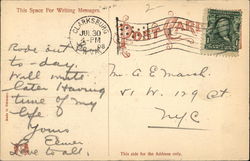 This Space For Writing Messages.
CLARKSBURG
JUL 30
-PM
POST CARD
Rode out here
to-day.
Will write
later Having
time of my
life
Yours
Elmer
Love to all.
Mr. A E Marsh.
W. 129 St
NYC
This side for the Address only.